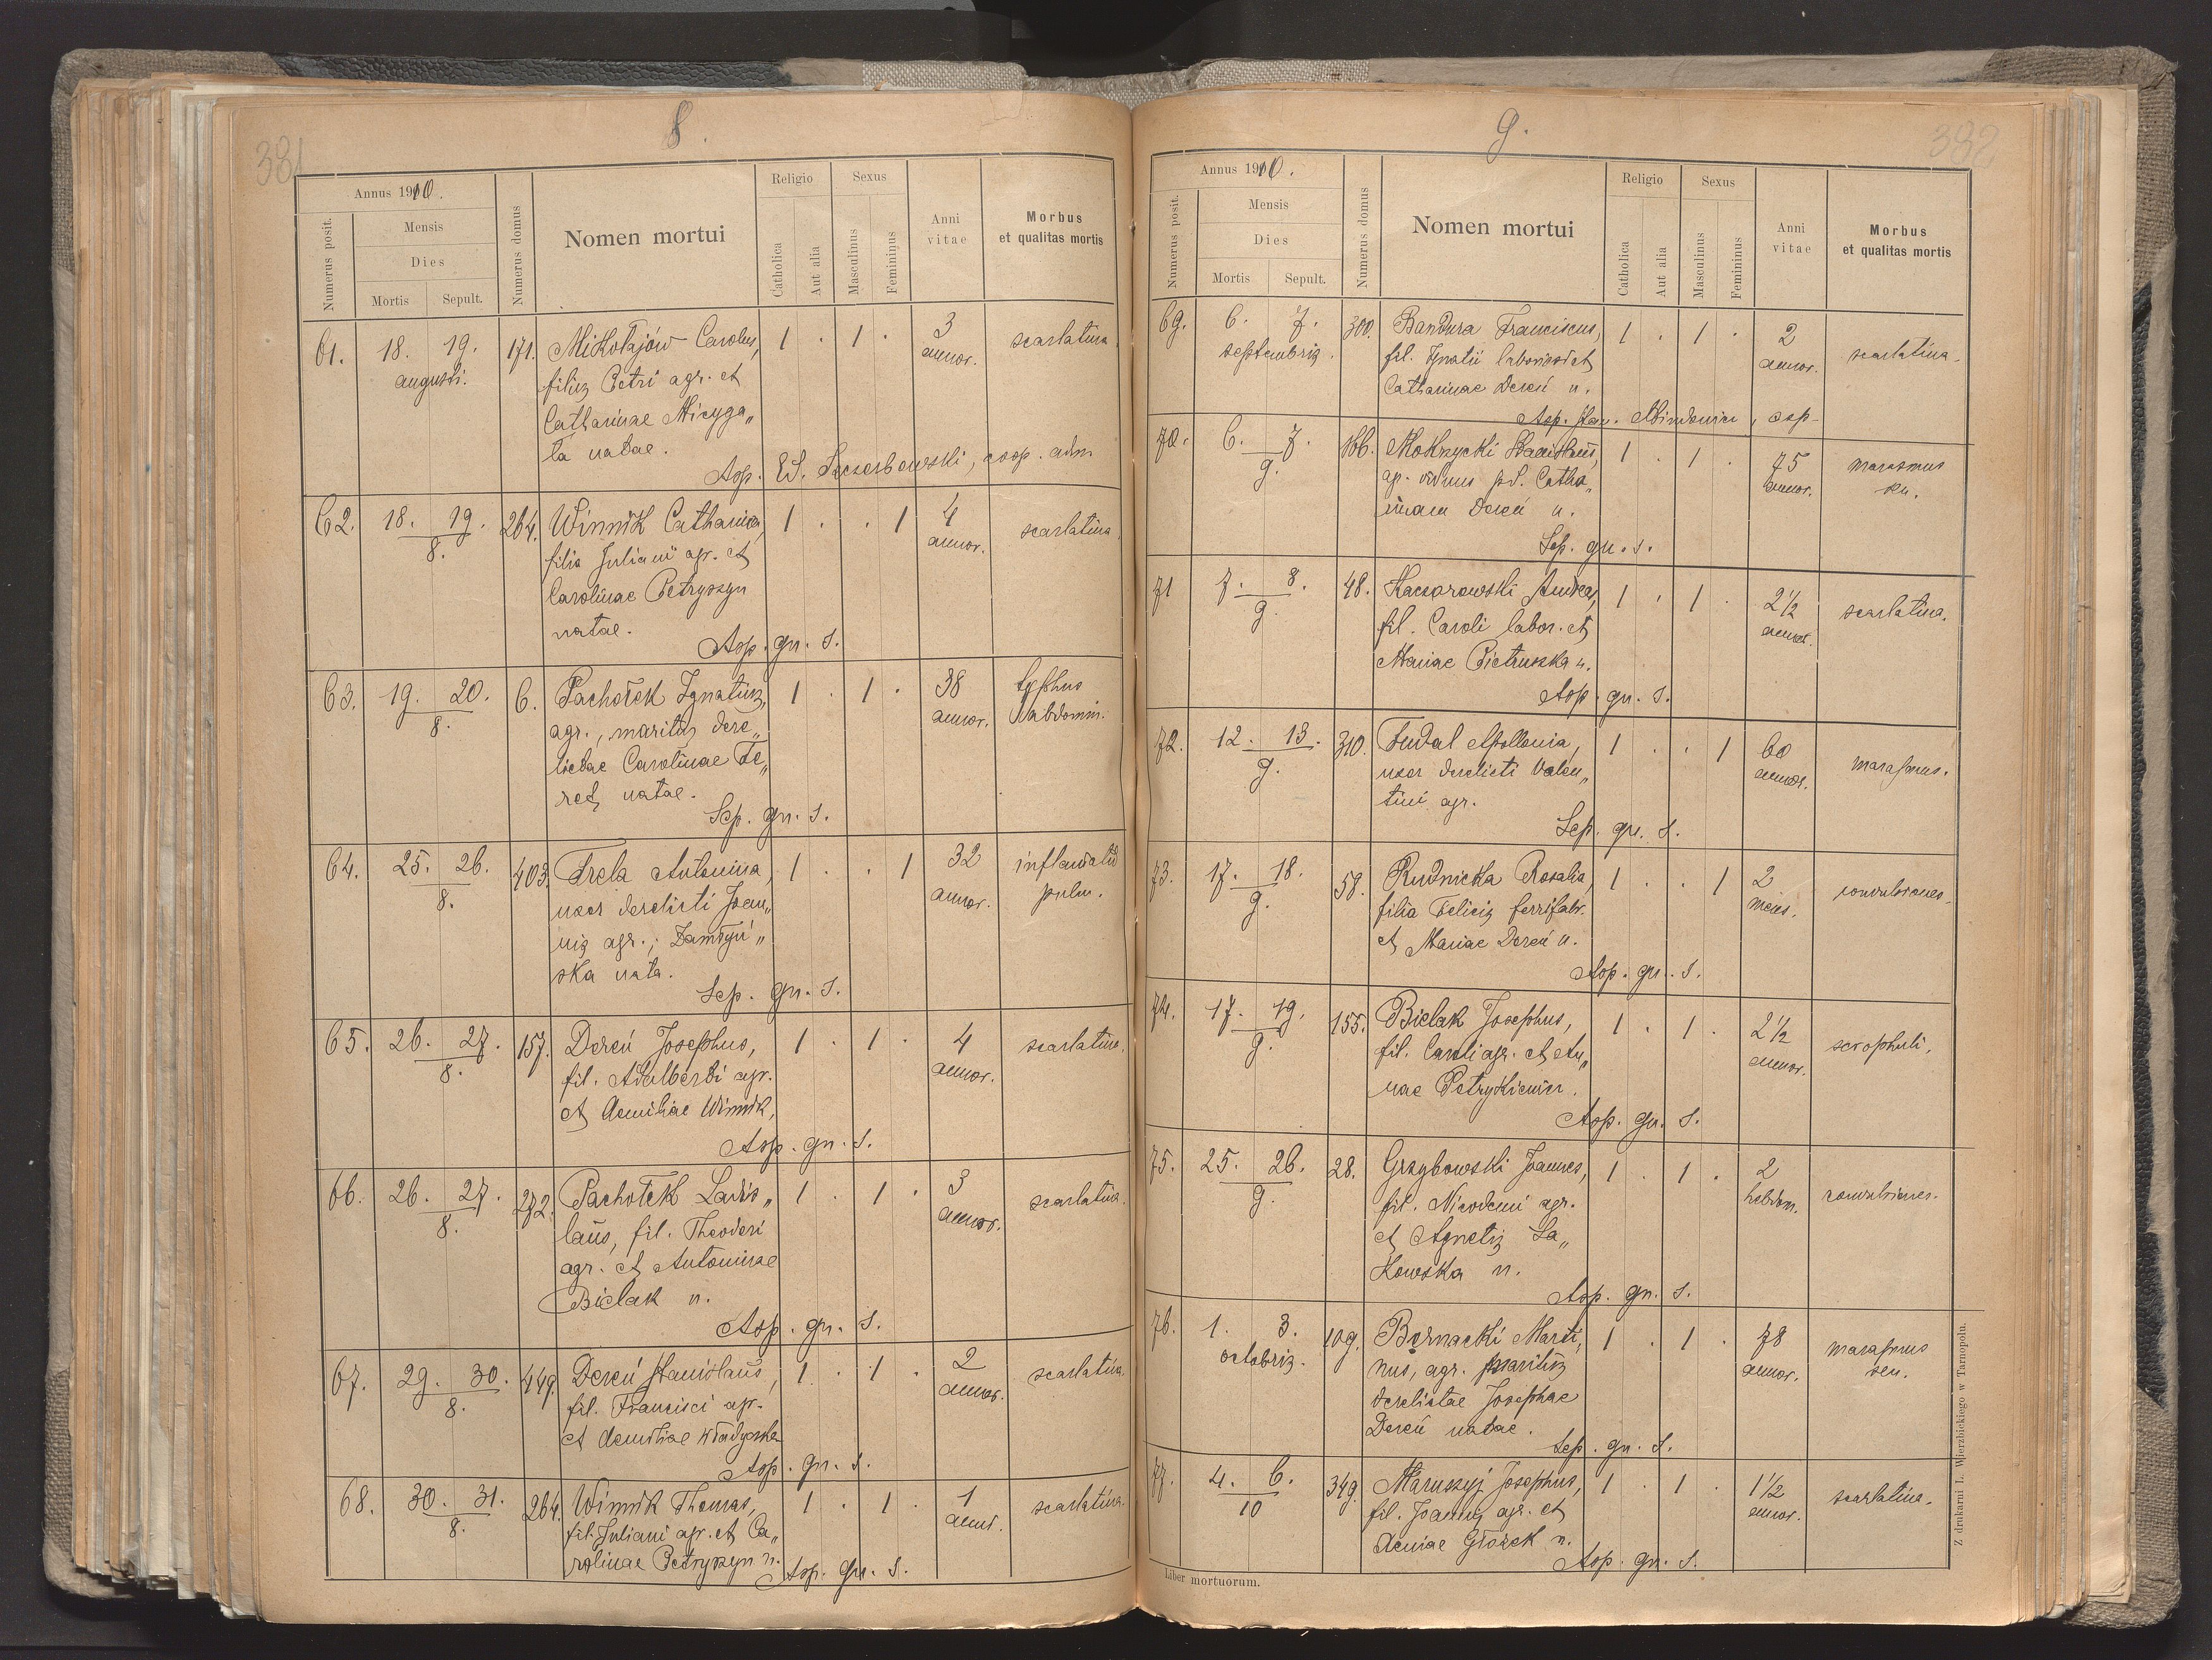 381
8.
Annus 1910.
Numerus posit.
Mensis
Dies
Mortis
Sepult.
Numerus domus
Nomen mortui
Religio
Catholica
Aut alia
Sexus
Masculinus
Femininus
Anni vitae
Morbus
et qualitas mortis
61. 18. 19. 171. Mikołajów Carolus, 1 . 1 . 3 scarlatina
augusti. filius Petri agr. et annor.
Catharinae Micyga„
ła natae.
Asp. Ed. coop. adm.
62. 18. 19. 264. Winnik Catharina, 1 . . 1 4 scarlatina
8. filia Juliani agr. et annor.
Carolinae Petryszyn
natae.
Asp. qu. s.
63. 19. 20. 6. Pachołek Ignatius, 1 . 1 . 38 typhus
8. agr., maritus dere„ annor. abdomin.
lictae Carolinae Te„
reć, natae.
Sep. qu. s.
64. 25. 26. 403. Trela Antonina, 1 . . 1 32
8. uxor derelicti Joan„ annor. pulm.
nis agr.; Zamłyń„
ska nata.
Sep. qu. s.
65. 26. 27. 157. Dereń Josephus, 1 . 1 . 4 scarlatina.
8. fil. Adalberti agr. annor.
et Aemiliae Winnik,
Asp. qu. s.
66. 26. 27. 272. Pachołek Ladis„ 1 . 1 . 3 scarlatina.
8. laus, fil. Theodori annor.
agr. et Antoninae
Bielak n.
Asp. qu. s.
67. 29. 30. 449. Dereń Stanislaus, 1 . 1 . 2 scarlatina.
8. fil. Francisci agr. annor.
et Aemiliae
Asp. qu. s.
68. 30. 31. 264. Winnik Thomas, 1 . 1 . 1 scarlatina.
8. fil. Juliani agr. et Ca„ anni.
rolinae Petryszyn n.
Asp. qu. s.
382
9.
Annus 1910.
Numerus posit.
Mensis
Dies
Mortis
Sepult.
Numerus domus
Nomen mortui
Religio
Catholica
Aut alia
Sexus
Masculinus
Femininus
Anni vitae
Morbus
et qualitas mortis
69. 6. 7. 300. Bandura Franciscus, 1 . 1 . 2 scarlatina.
septembris. fil. Ignatii et annor.
Catharinae Dereń n.
Asp.
70. 6. 7. 166. Mokrzycki Stanislaus, 1 . 1 . 75 marasmus
9. agr. viduus p. d. Catha„ annor. sen.
rinam Dereń n.
Sep. qu. s.
71 7. 8. 48. Kaczorowski Andreas, 1 . 1 . 2½ scarlatina.
9. fil. Caroli labor. et annor.
Mariae Pietruszka n.
Asp. qu. s.
72. 12. 13. 310. Fudal Apollonia, 1 . . 1 60 marasmus.
9. uxor derelicti Valen„ annor.
tini agr.
Sep. qu. s.
73. 17. 18. 58. Rudnicka Rosalia, 1 . . 1 2 convulsiones.
9. filia Felicis ferrifabr. mens.
et Mariae Dereń n.
Asp. qu. s.
74. 17. 19. 155. Bielak Josephus, 1 . 1 . 2½ scrophuli.
9. fil. Caroli agr. et An„ annor.
nae Petrykiewicz.
Asp. qu. s.
75. 25. 26. 28. Grzybowski Joannes, 1 . 1 . 2 convulsiones.
9. fil. Nicodemi agr. hebdom.
et Agnetis Sa„
kowska n.
Asp. qu. s.
76. 1. 3. 109. Bernacki Marti„ 1 . 1 . 78 marasmus
octobris. nus, agr. maritus annor. sen.
derelictae Josephae
Dereń natae.
Sep. qu. s.
77. 4. 6. 349. Maruszyj Josephus, 1 . 1 . 1½ scarlatina.
10 fil. Joannis agr. et annor.
Annae Głożek n.
Asp. qu. s.
Liber mortuorum.
Z drukarni L. Wierzbickiego w Tarnopolu.